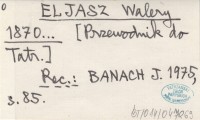 ELJASZ Walery
1870... [Przewodnik do
Tatr.]
Rec.: BANACH J. 1975,
s. 85.